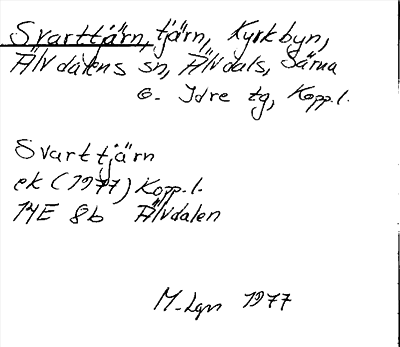 Svarttjärn, tjärn, Kyrkbyn,
Älvdalens sn, Älvdals, Särna
o. Idre tg, Kopp.l.
Svarttjärn
ek (1977) Kopp.l.
14E 8b Älvdalen
M-Lgn 1977